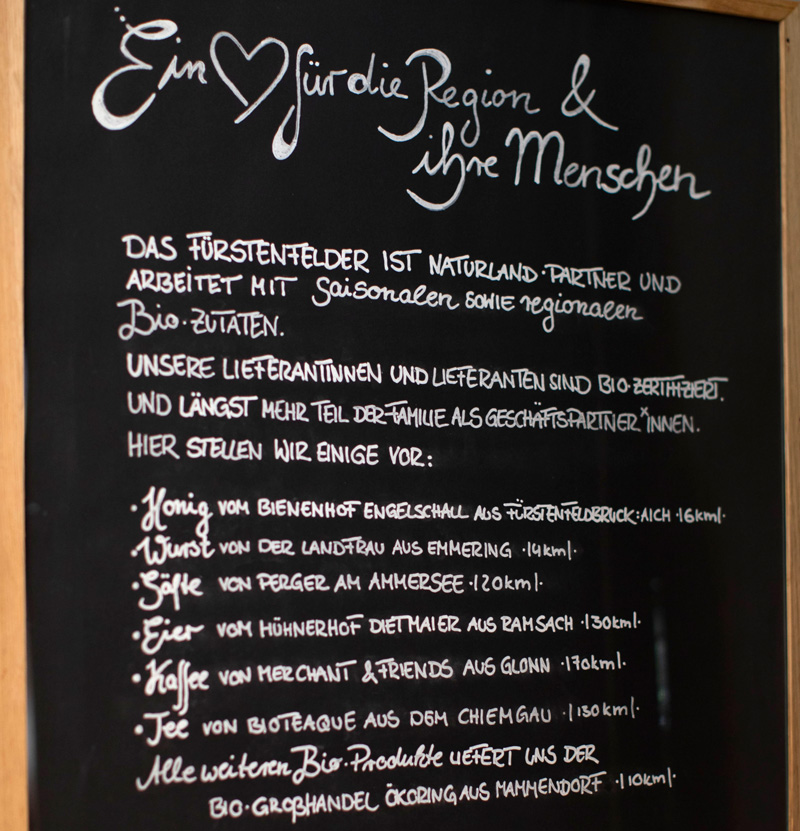 Ein ♡ für die Region &
ihre Menschen
DAS FÜRSTENFELDER IST NATURLAND·PARTNER UND
ARBEITET MIT saisonalen SOWIE regionalen
Bio·ZUTATEN.
UNSERE LIEFERANTINNEN UND LIEFERANTEN SIND BIO·ZERTIFIZIERT.
UND LÄNGST MEHR TEIL DER FAMILIE ALS GESCHÄFTSPARTNER*INNEN.
HIER STELLEN WIR EINIGE VOR:
·Honig VOM BIENENHOF ENGELSCHALL AUS FÜRSTENFELDBRUCK:AICH ·|6km|·
·Wurst VON DER LANDFRAU AUS EMMERING ·|4km|·
·Säfte VON PERGER AM AMMERSEE ·|20km|·
·Eier VOM HÜHNERHOF DIETMAIER AUS RAMSACH ·|30km|·
·Kaffee VON MERCHANT & FRIENDS AUS GLONN ·|70km|·
·Tee VON BIOTEAQUE AUS DEM CHIEMGAU ·|130km|·
Alle weiteren Bio·Produkte LIEFERT UNS DER
BIO·GROßHANDEL ÖKORING AUS MAMMENDORF ·|10km|·